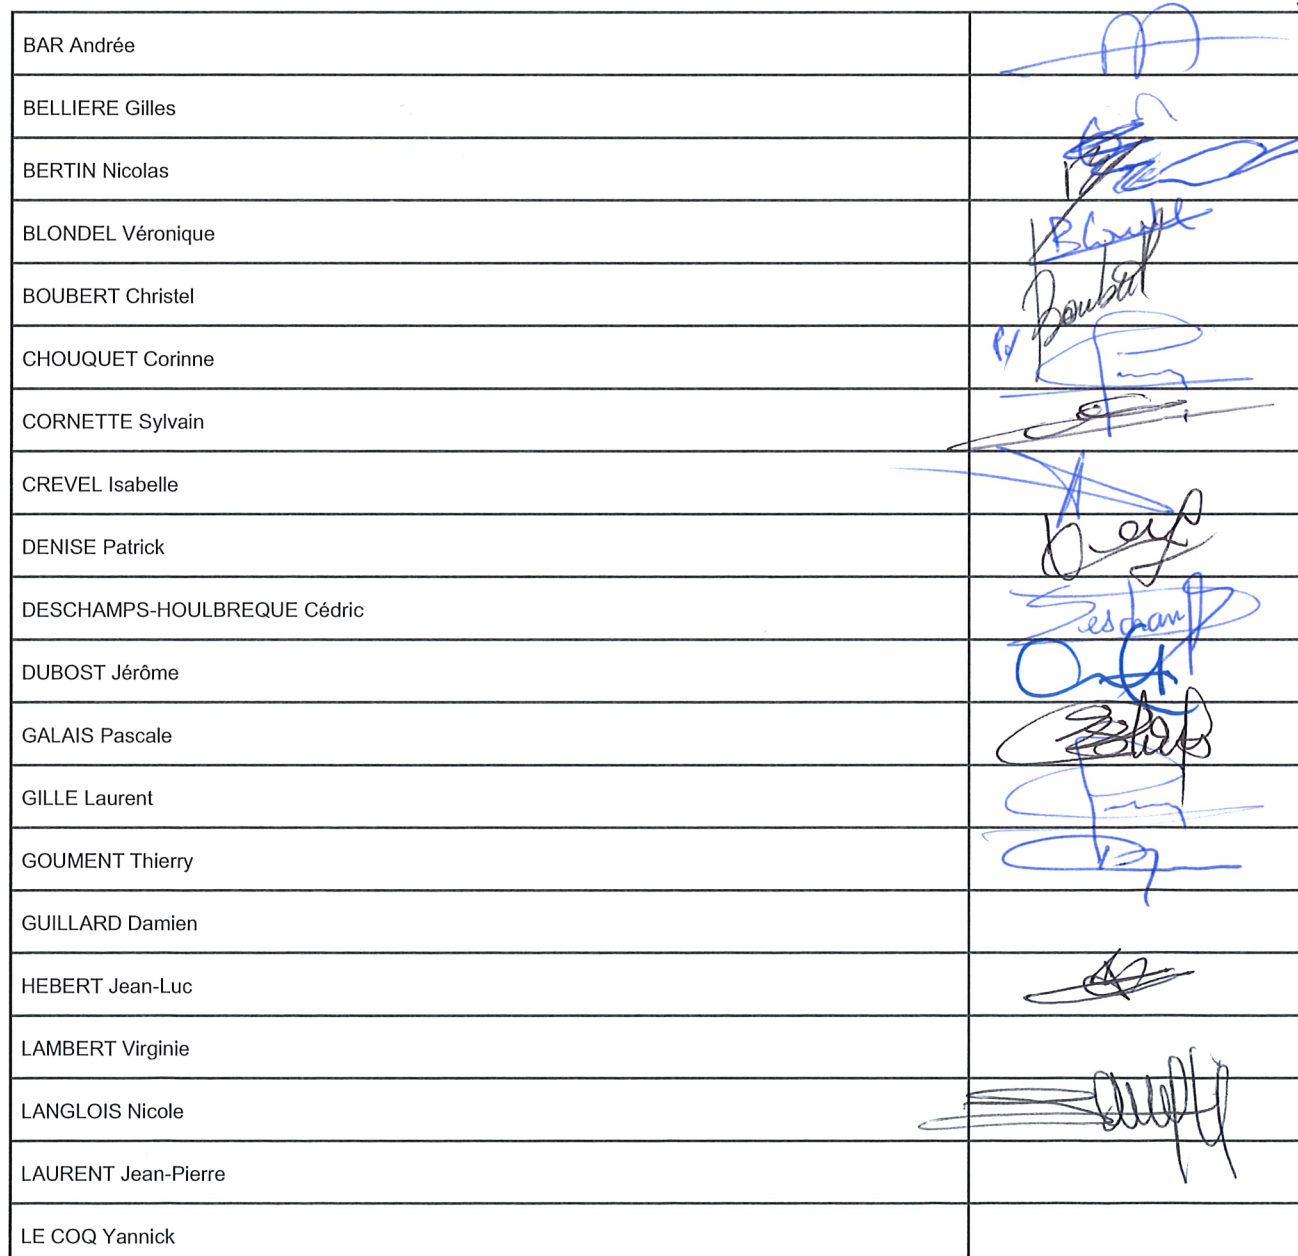 BAR Andrée
BELLIERE Gilles
BERTIN Nicolas
BLONDEL Véronique
BOUBERT Christel
CHOUQUET Corinne
CORNETTE Sylvain
CREVEL Isabelle
DENISE Patrick
DESCHAMPS-HOULBREQUE Cédric
DUBOST Jérôme
GALAIS Pascale
GILLE Laurent
GOUMENT Thierry
GUILLARD Damien
HEBERT Jean-Luc
LAMBERT Virginie
LANGLOIS Nicole
LAURENT Jean-Pierre
LE COQ Yannick